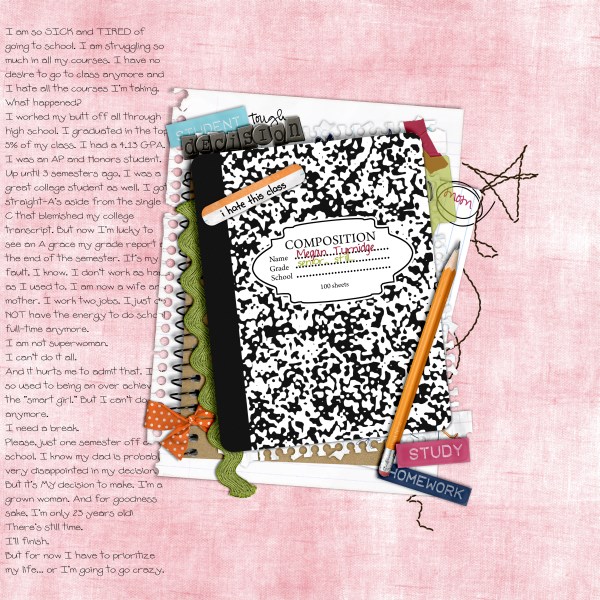 I am so SICK and TIRED of
going to school. I am struggling so
much in all my courses. I have no
desire to go to class anymore and
I hate all the courses I'm taking.
What happened?
I worked my butt off all through
high school. I graduated in the top
5% of my class. I had a 4.13 GPA.
I was an AP and Honors student.
Up until 3 semesters ago, I was a
great college student as well. I got
straight-A's aside from the single
C that blemished my college
transcript. But now I'm lucky to
see an A grace my grade report
the end of the semester. It's my
fault, I know. I don't work as
as I used to. I am now a wife
mother. I work two jobs. I just
NOT have the energy to do
full-time anymore.
I am not superwoman.
I can't do it all.
And it hurts me to admit that.
so used to being an over
the "smart girl." But I can't
anymore.
I need a break.
Please, just one semester off
school. I know my dad is
very disappointed in my decision
But it's My decision to make. I'm a
grown woman. And for goodness
sake. I'm only 23 years old!
There's still time.
I'll finish.
But for now I have to prioritize
my life... or I'm going to go crazy.
STUDENT
tough
decision
i hate this class
mom
COMPOSITION
Name Megan Turnidge
Grade senior still
School
100 sheets
STUDY
HOMEWORK